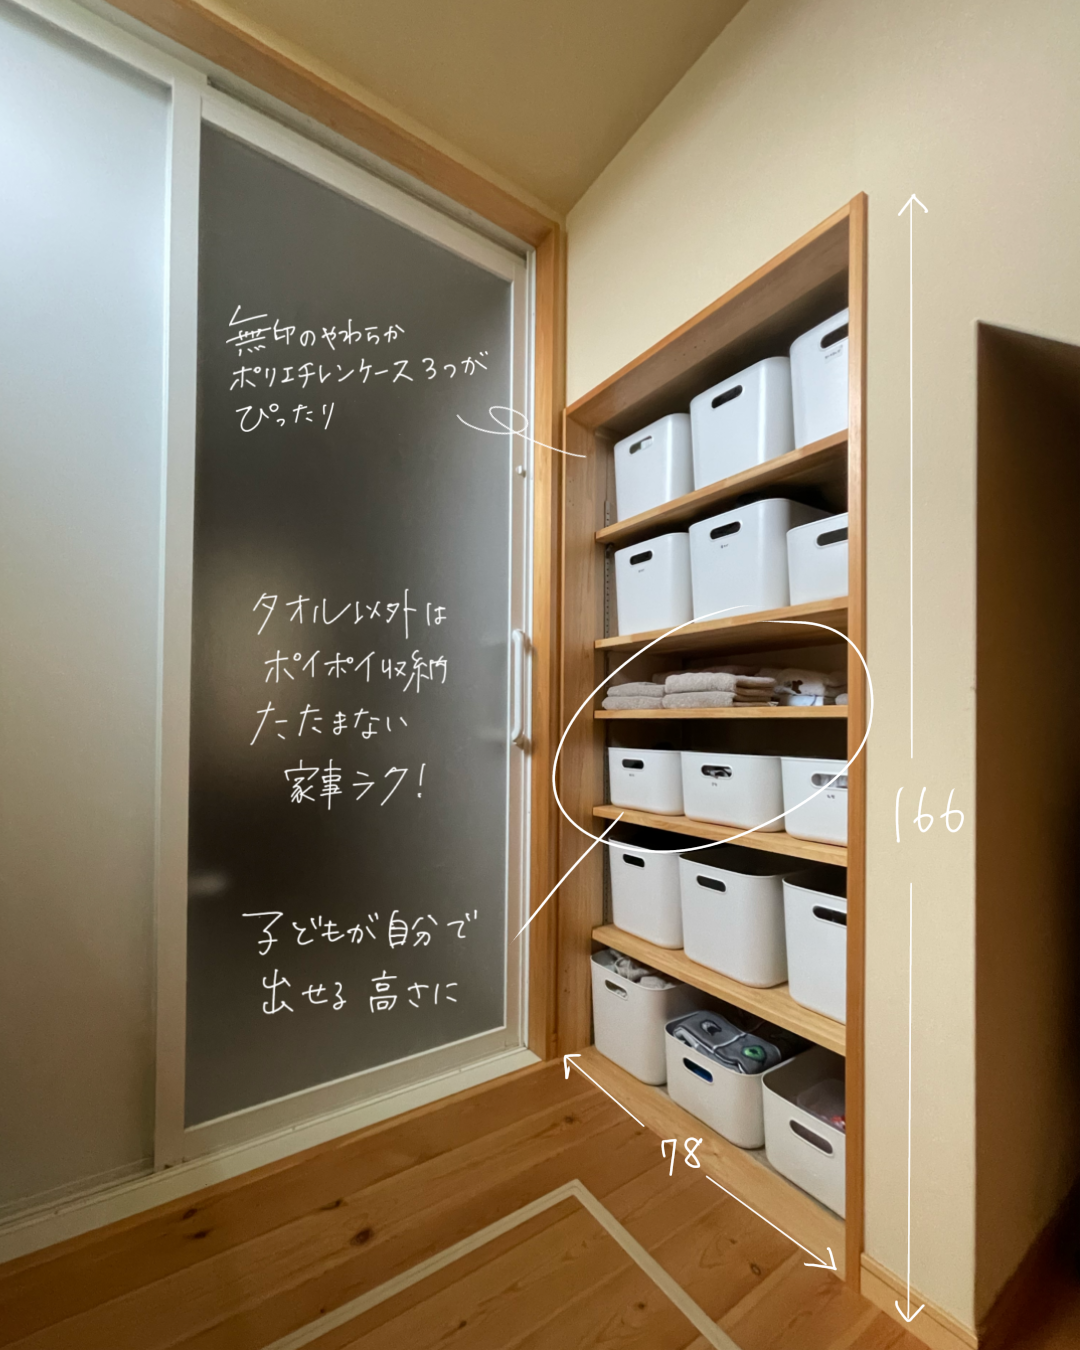 無印のやわらか
ポリエチレンケース3つが
ぴったり
タオル以外は
ポイポイ収納
たたまない
家事ラク!
子どもが自分で
出せる高さに
166
78